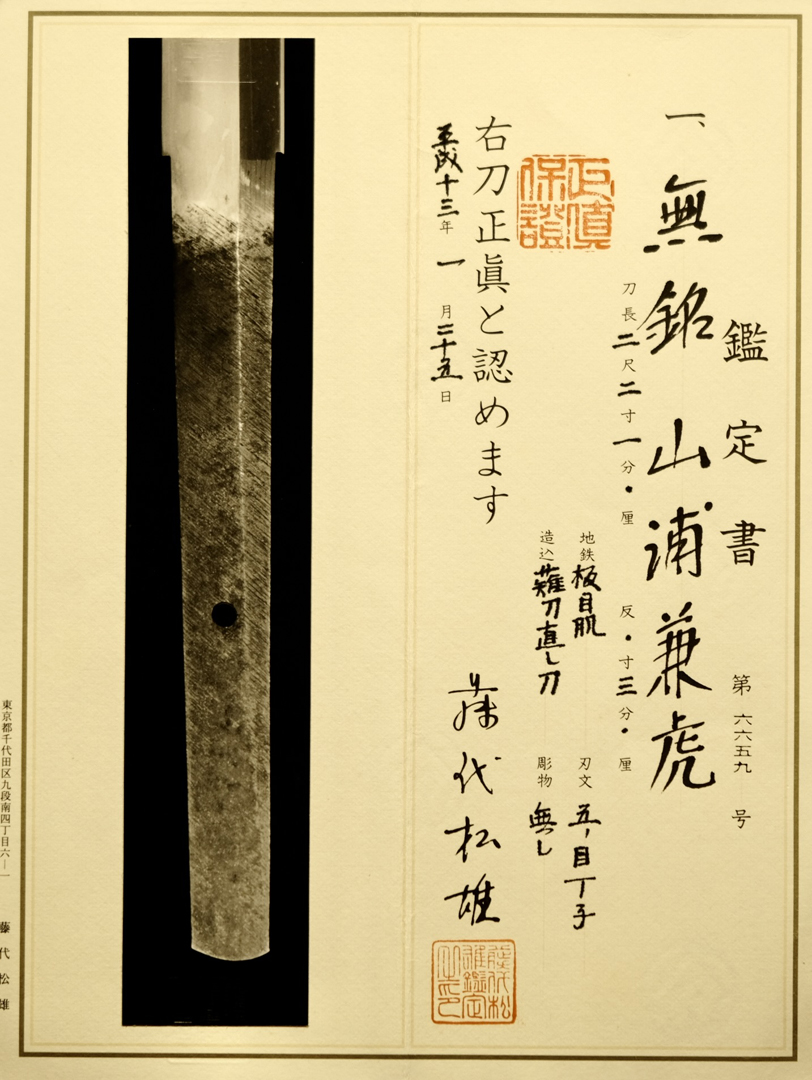 鑑定書 第六六五九号
一、無銘 山浦兼虎
刀長二尺二寸一分・厘 反・寸三分・厘
正眞保證
地鉄 板目肌 刃文 五ノ目丁子
造込 薙刀直し刀 彫物 無し
右刀正眞と認めます
平成十三年一月二十五日
藤代松雄
藤代松雄鑑定之印
東京都千代田区九段南四丁目六―一 藤代松雄